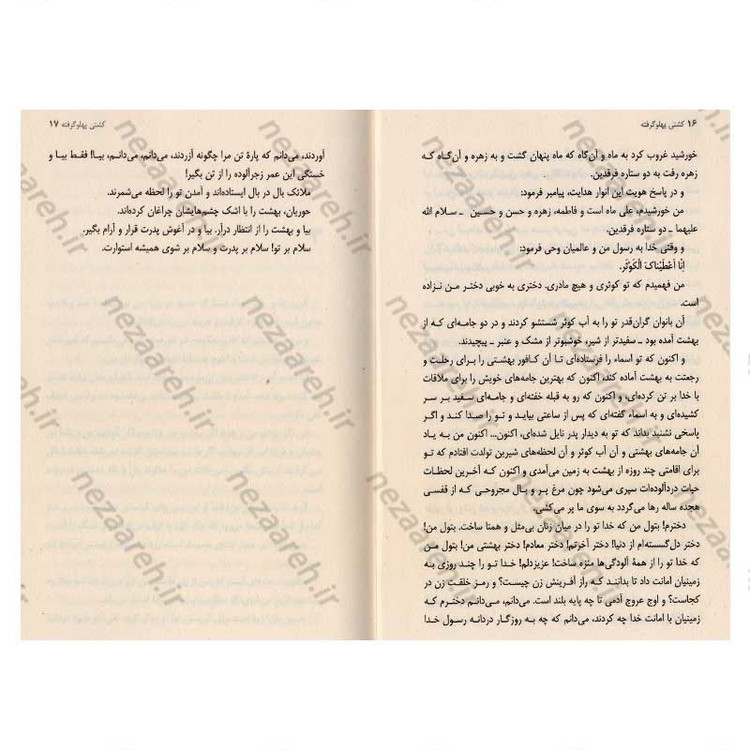 ۱۶ کشتی پهلوگرفته
خورشید غروب کرد به ماه و آن‌گاه که ماه پنهان گشت و به زهره و آن‌گاه که
زهره رفت به دو ستاره فرقدین.
و در پاسخ هویت این انوار هدایت، پیامبر فرمود:
من خورشیدم، علی ماه است و فاطمه، زهره و حسن و حسین ـ سلام الله
علیهما ـ دو ستاره فرقدین.
و وقتی خدا به رسول من و عالمیان وحی فرمود:
اِنّا اَعْطَیْناکَ الْکَوْثَر.
من فهمیدم که تو کوثری و هیچ مادری، دختری به خوبی دختر من نزاده
است.
آن بانوان گران‌قدر تو را به آب کوثر شستشو کردند و در دو جامه‌ای که از
بهشت آمده بود ـ سفیدتر از شیر، خوشبوتر از مشک و عنبر ـ پیچیدند.
و اکنون که تو اسماء را فرستاده‌ای تا آن کافور بهشتی را برای رحلت و
رجعتت به بهشت آماده کند، اکنون که بهترین جامه‌های خویش را برای ملاقات
با خدا بر تن کرده‌ای، و اکنون که رو به قبله خفته‌ای و جامه‌ای سفید بر سر
کشیده‌ای و به اسماء، گفته‌ای که پس از ساعتی بیاید و تو را صدا کند و اگر
پاسخی نشنید بداند که تو به دیدار پدر نایل شده‌ای، اکنون... اکنون من به یاد
آن جامه‌های بهشتی و آن آب کوثر و آن لحظه‌های شیرین تولدت افتادم که تو
برای اقامتی چند روزه از بهشت به زمین می‌آمدی و اکنون که آخرین لحظات
حیات دردآلوده‌ات سپری می‌شود چون مرغ پر و بال مجروحی که از قفسی
هجده ساله رها می‌گردد به سوی ما پر می‌کشی.
دخترم! بتول من که خدا تو را در میان زنان بی‌مثل و همتا ساخت. بتول من!
دختر دل‌گسسته‌ام از دنیا! دختر آخرتم! دختر معادم! دختر بهشتی من! بتول من
که خدا تو را از همهٔ آلودگی‌ها منزه ساخت! عزیزدلم! خدا تو را چند روزی به
زمینیان امانت داد تا بدانند که راز آفرینش زن چیست؟ و رمز خلقت زن در
کجاست؟ و اوج عروج آدمی تا چه پایه بلند است. می‌دانم، می‌دانم دخترم که
زمینیان با امانت خدا چه کردند، می‌دانم که چه به روزگار دردانه رسول خدا
کشتی پهلوگرفته ۱۷
آوردند، می‌دانم که پارهٔ تن مرا چگونه آزردند، می‌دانم، می‌دانم، بیا! فقط بیا و
خستگی این عمر زجرآلوده را از تن بگیر!
ملائک بال در بال ایستاده‌اند و آمدن تو را لحظه می‌شمرند.
حوریان، بهشت را با اشک چشم‌هایشان چراغان کرده‌اند.
بیا و بهشت را از انتظار درآر. بیا و در آغوش پدرت قرار و آرام بگیر.
سلام بر تو! سلام بر پدرت و سلام بر شوی همیشه استوارت.
nezaareh.ir
nezaareh.ir
nezaareh.ir
nezaareh.ir
nezaareh.ir
nezaareh.ir